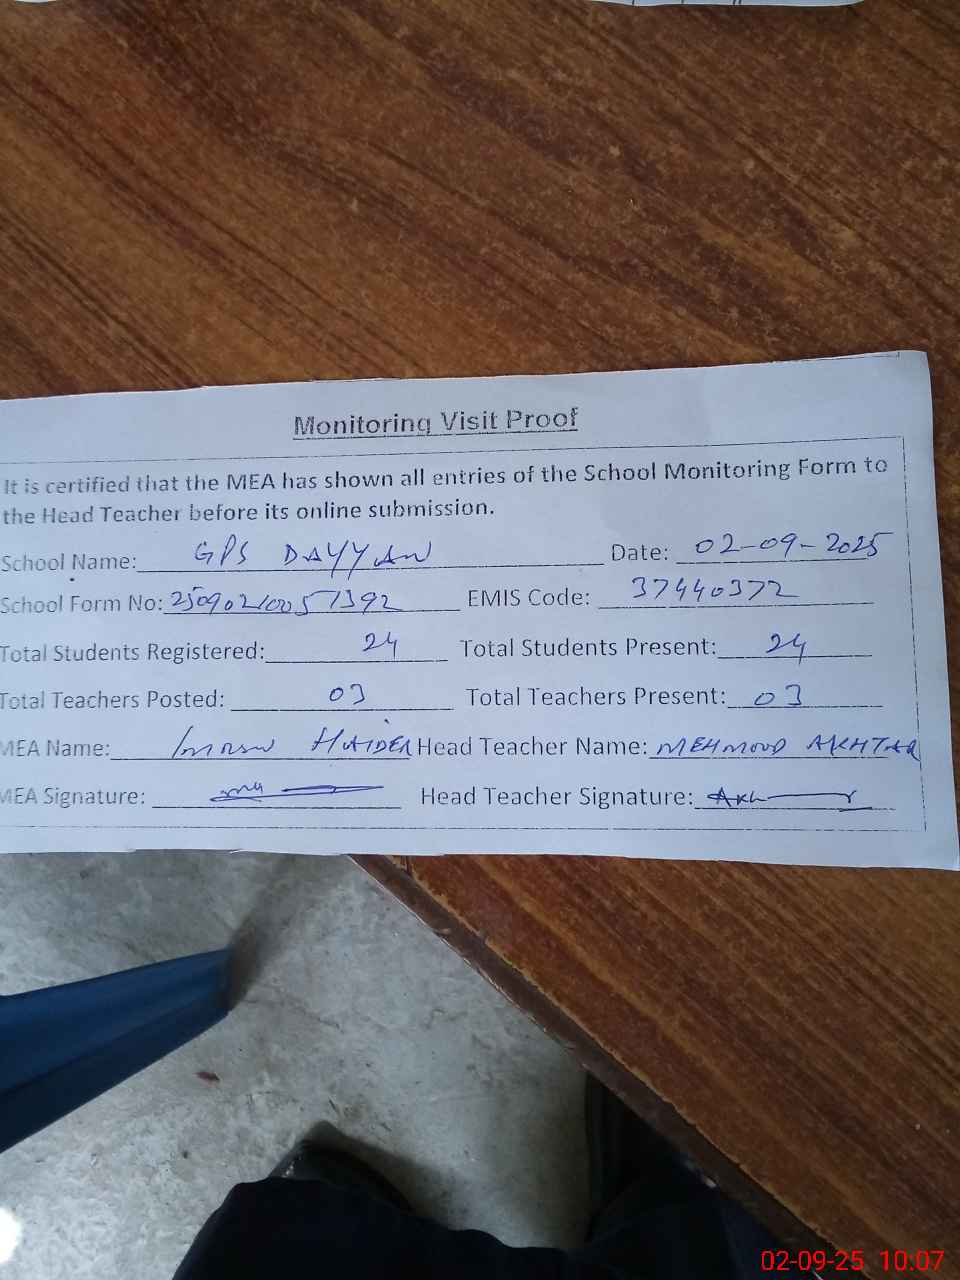 Monitoring Visit Proof
It is certified that the MEA has shown all entries of the School Monitoring Form to
the Head Teacher before its online submission.
School Name: GPS DAYYAN Date: 02-09-2025
School Form No: 25090210057392 EMIS Code: 37440372
Total Students Registered: 24 Total Students Present: 24
Total Teachers Posted: 03 Total Teachers Present: 03
MEA Name: Imran HAIDER Head Teacher Name: MEHMOOD AKHTAR
MEA Signature: Head Teacher Signature:
02-09-25 10:07